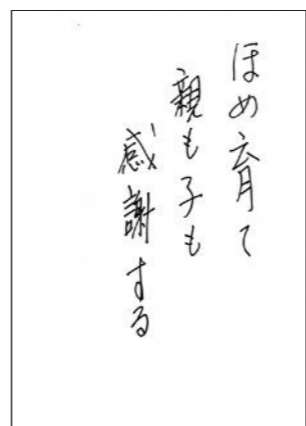 ほめ育て
親も子も
感謝する